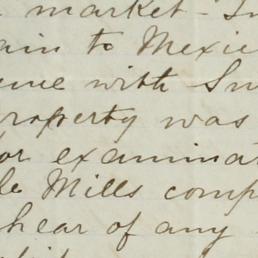 market - In
ain to Mexic
me with Sw
property was
or examina
le Mills comp
hear of any